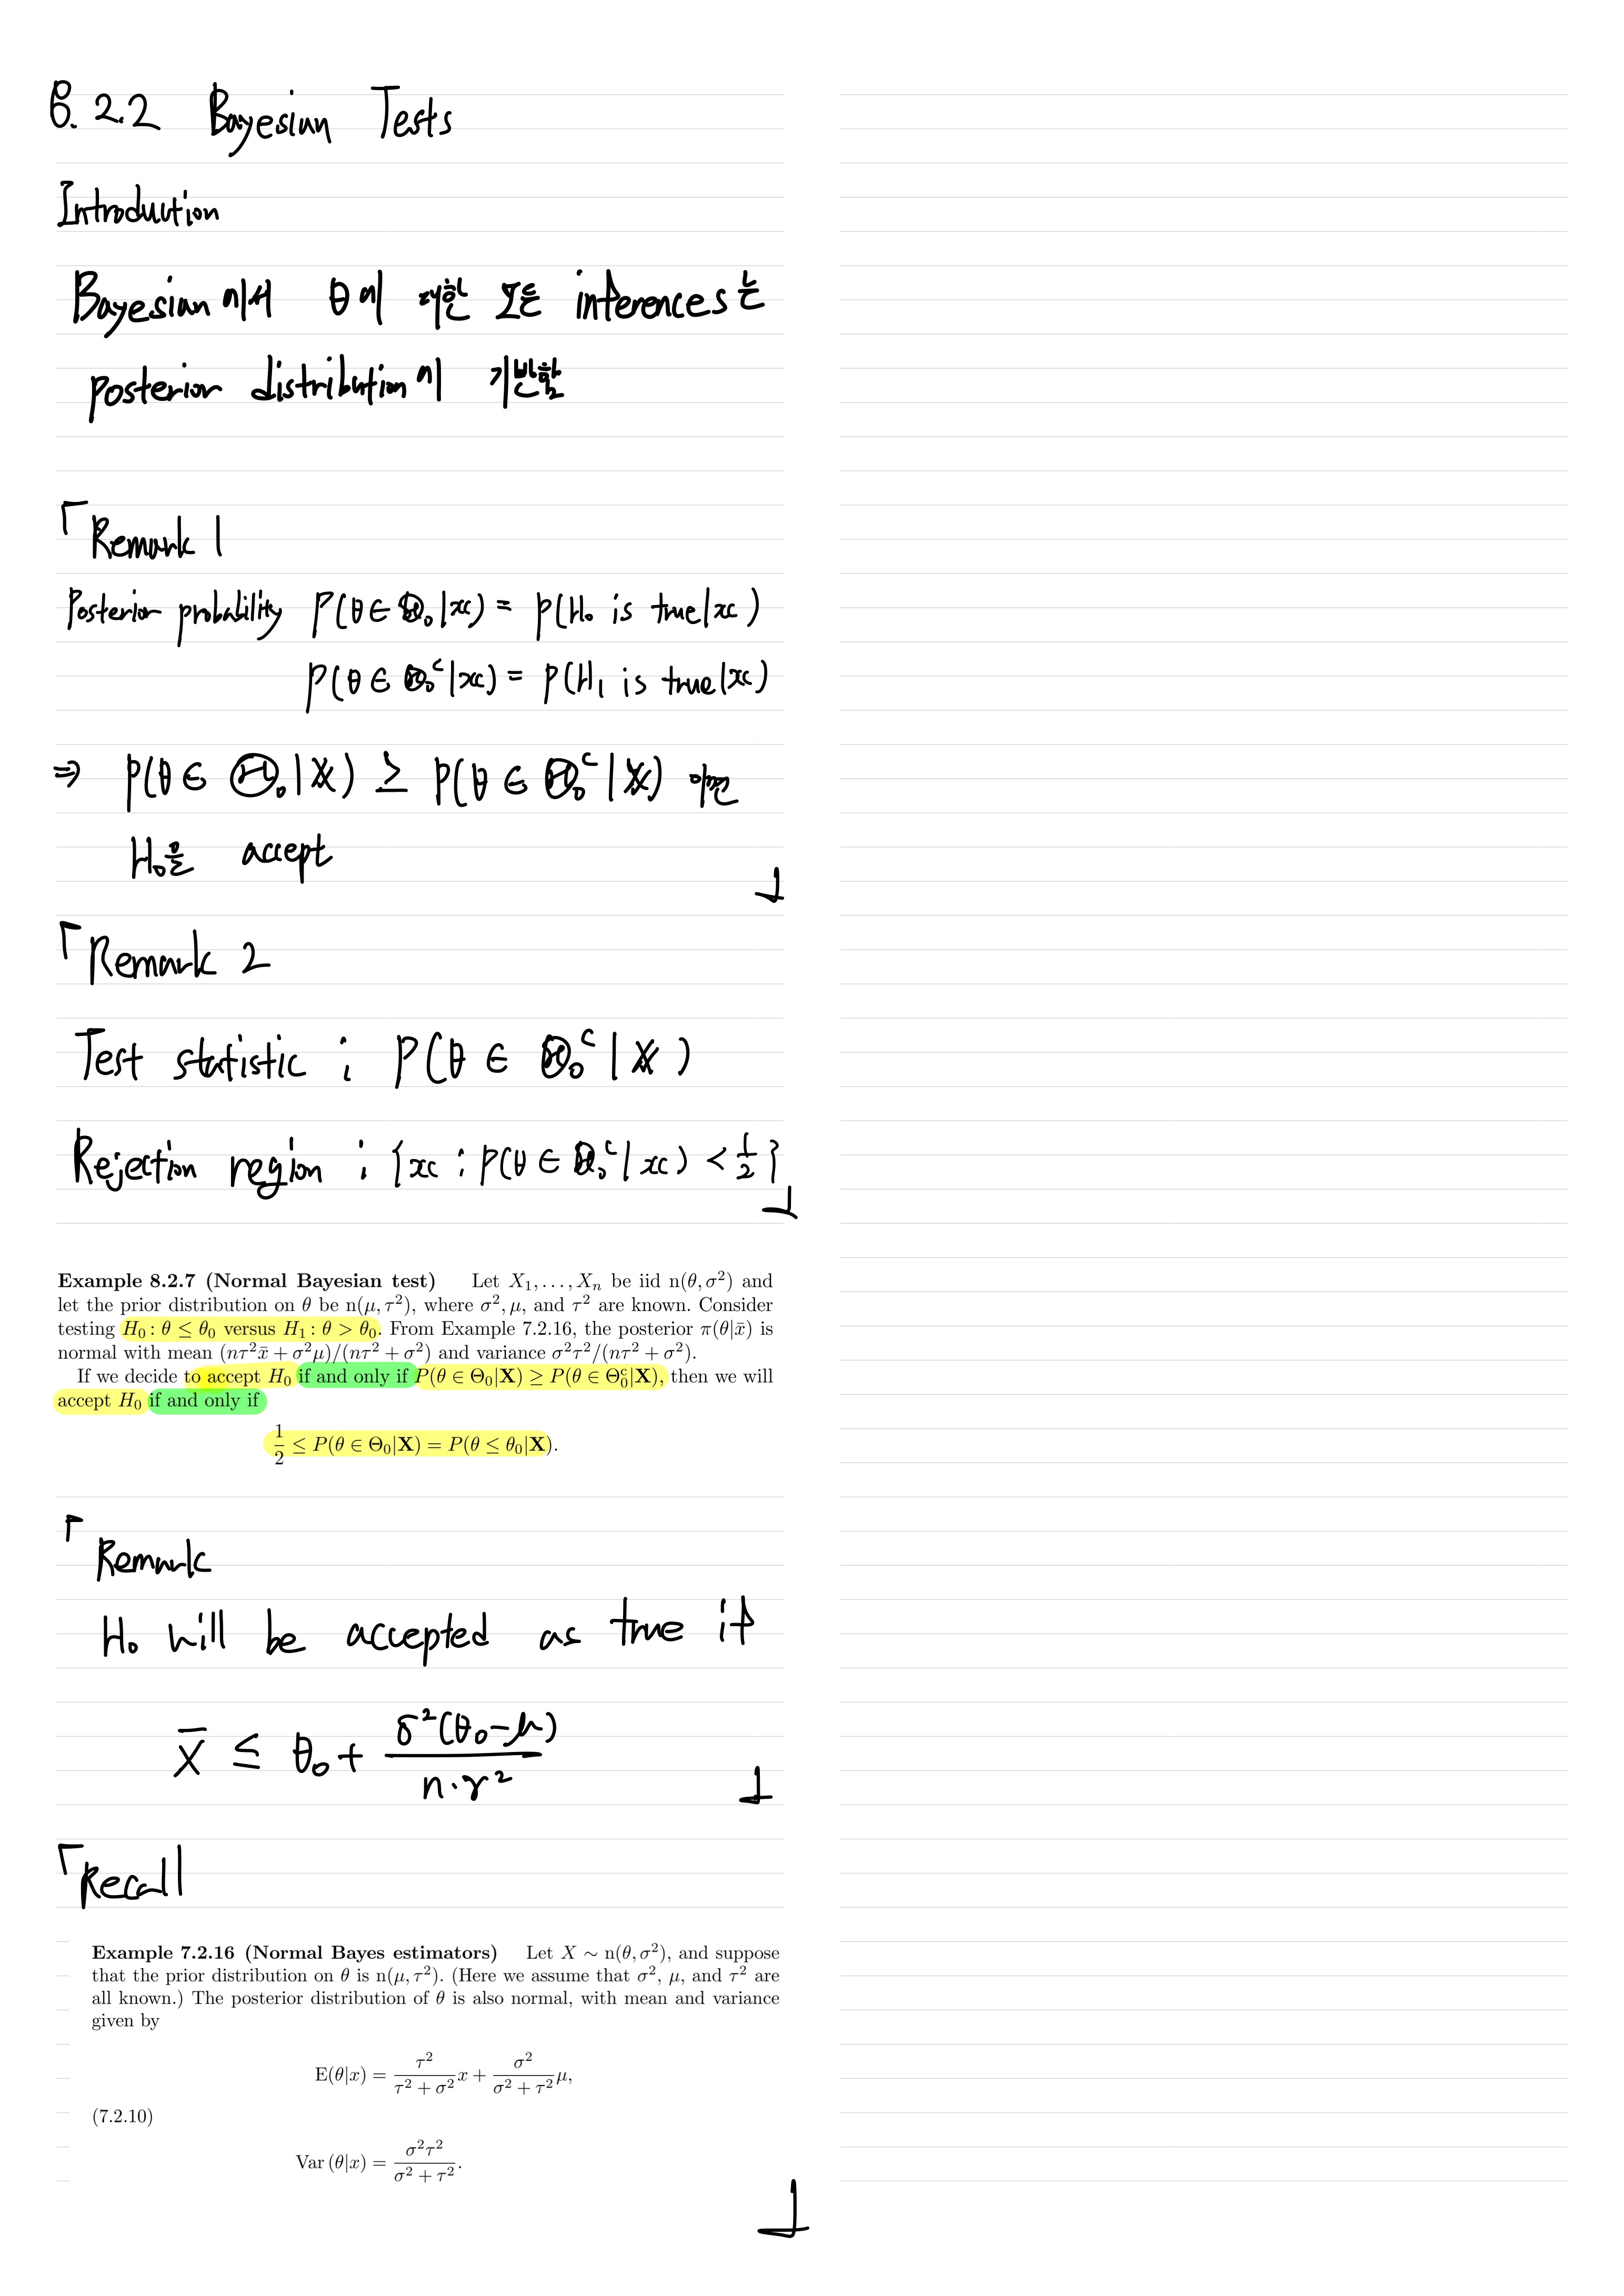 8.2.2 Bayesian Tests
Introduction
Bayesian에서 θ에 대한 모든 inferences는
posterior distribution에 기반함
「Remark 1
Posterior probability P(θ ∈ Θ₀ | x) = P(H₀ is true | x)
P(θ ∈ Θ₀ᶜ | x) = P(H₁ is true | x)
⇒ P(θ ∈ Θ₀ | X) ≥ P(θ ∈ Θ₀ᶜ | X) 이면
H₀를 accept
」
「Remark 2
Test statistic : P(θ ∈ Θ₀ᶜ | X)
Rejection region : {x : P(θ ∈ Θ₀ᶜ | x) < 1/2}
」
Example 8.2.7 (Normal Bayesian test) Let X₁, . . . , Xₙ be iid n(θ, σ²) and
let the prior distribution on θ be n(μ, τ²), where σ², μ, and τ² are known. Consider
testing H₀ : θ ≤ θ₀ versus H₁ : θ > θ₀. From Example 7.2.16, the posterior π(θ|x̄) is
normal with mean (nτ²x̄ + σ²μ)/(nτ² + σ²) and variance σ²τ²/(nτ² + σ²).
If we decide to accept H₀ if and only if P(θ ∈ Θ₀|X) ≥ P(θ ∈ Θ₀ᶜ|X), then we will
accept H₀ if and only if
1/2 ≤ P(θ ∈ Θ₀|X) = P(θ ≤ θ₀|X).
「Remark
H₀ will be accepted as true if
X̄ ≤ θ₀ + σ²(θ₀-μ) / n·τ²
」
「Recall
Example 7.2.16 (Normal Bayes estimators) Let X ∼ n(θ, σ²), and suppose
that the prior distribution on θ is n(μ, τ²). (Here we assume that σ², μ, and τ² are
all known.) The posterior distribution of θ is also normal, with mean and variance
given by
E(θ|x) = τ²/(τ² + σ²) x + σ²/(σ² + τ²) μ,
(7.2.10)
Var (θ|x) = σ²τ²/(σ² + τ²).
」